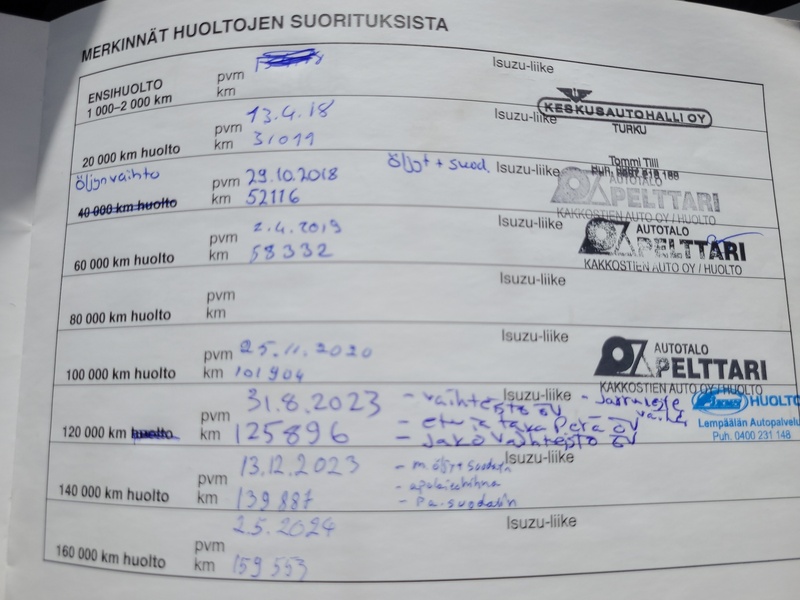 MERKINNÄT HUOLTOJEN SUORITUKSISTA
ENSIHUOLTO
1 000–2 000 km
pvm
km
Isuzu-liike
20 000 km huolto
pvm 13.4.18
km 31011
Isuzu-liike
KESKUSAUTOHALLI OY
TURKU
Tommi Tilli
Öljynvaihto
40 000 km huolto
pvm 29.10.2018
km 52116
Öljyt + suod.
Isuzu-liike
AUTOTALO
PELTTARI
KAKKOSTIEN AUTO OY / HUOLTO
60 000 km huolto
pvm 2.4.2019
km 58332
Isuzu-liike
AUTOTALO
PELTTARI
KAKKOSTIEN AUTO OY / HUOLTO
80 000 km huolto
pvm
km
Isuzu-liike
100 000 km huolto
pvm 25.11.2020
km 101904
Isuzu-liike
AUTOTALO
PELTTARI
KAKKOSTIEN AUTO OY / HUOLTO
120 000 km huolto
pvm 31.8.2023
km 125896
Isuzu-liike
- vaihteisto öv - Jarruneste vaihd.
- etu ja taka Perä öv
- Jakovaihteisto öv
HUOLTO
Lempäälän Autopalvelu
Puh. 0400 231 148
140 000 km huolto
pvm 13.12.2023
km 139887
Isuzu-liike
- m. öljy + suodatin
- apulaitehihna
- Pa-suodatin
160 000 km huolto
pvm 2.5.2024
km 159553
Isuzu-liike